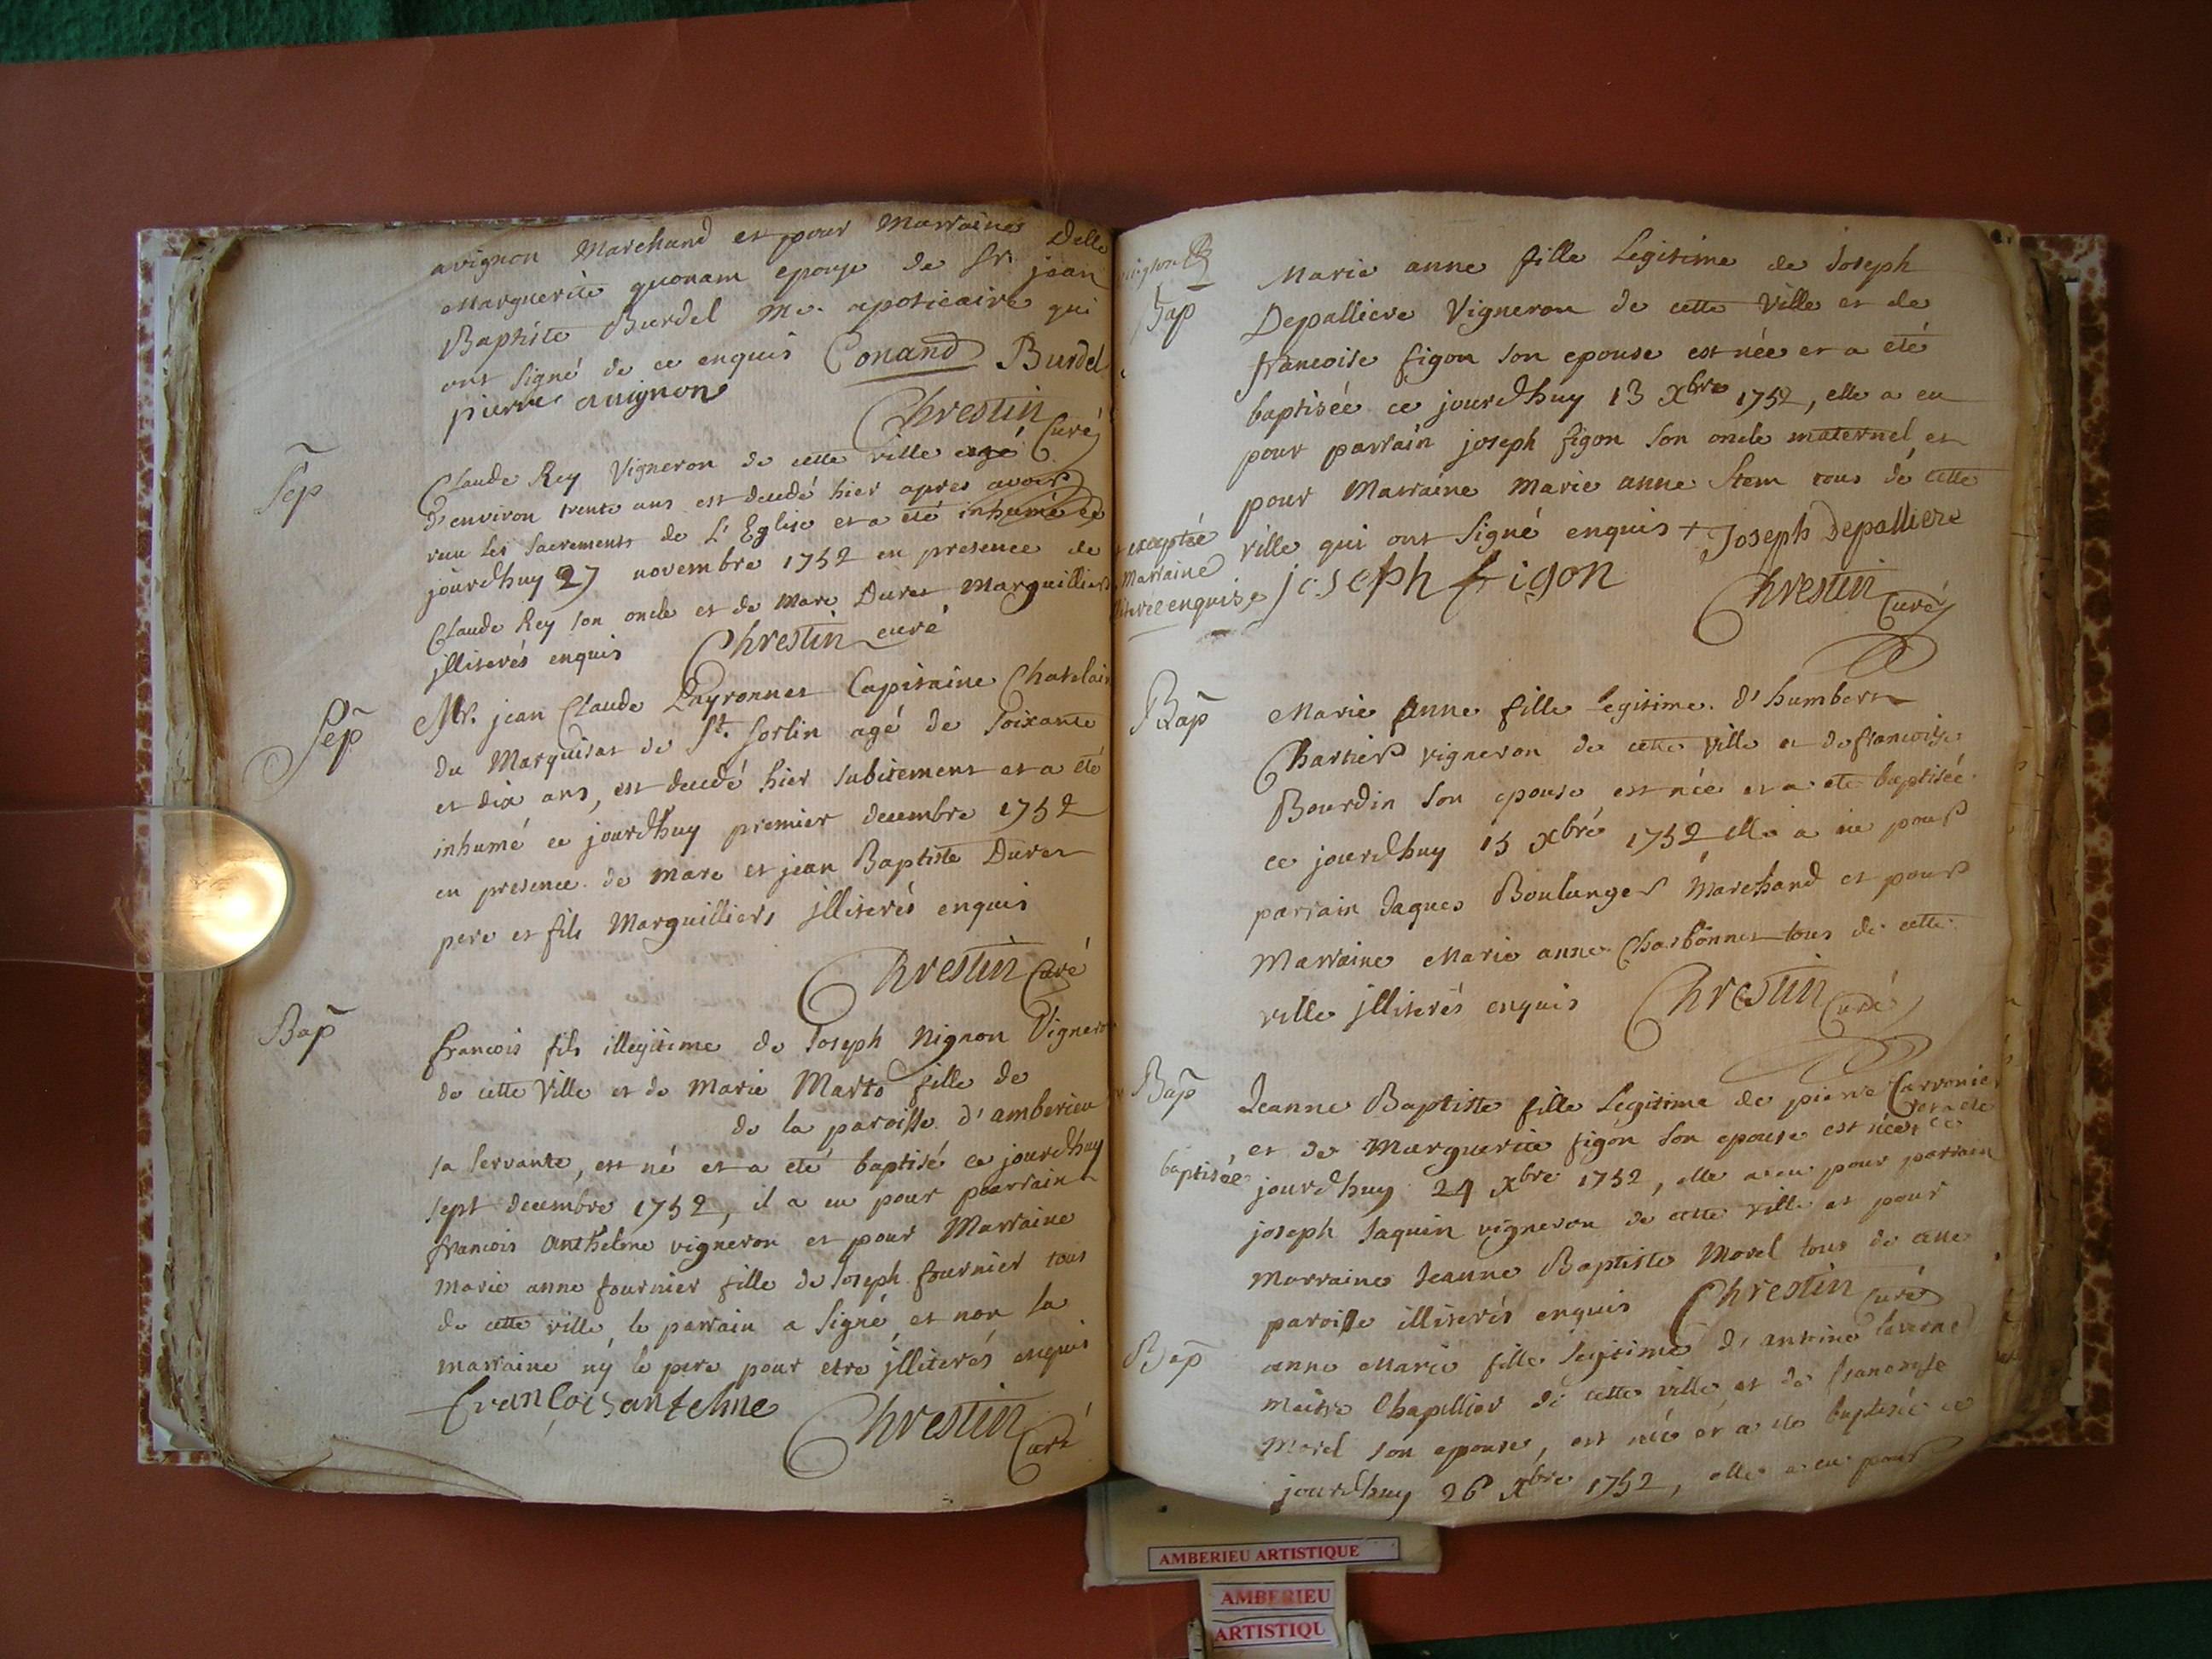 avignon Marchand et pour Marraine Delle
Marguerite quonam epouse de Sr. jean
Baptiste Burdel Me. apoticaire qui
ont signé de ce enquis Conand Burdel
pierre avignon
Chrestin Curé
Sep
Claude Rey Vigneron de cette ville agé
d'environ trente ans est decedé hier apres avoir
recu les sacrements de L'Eglise et a eté inhumé ce
jourdhuy 27 novembre 1752 en presence de
Claude Rey son oncle et de Marc Duret Marguilliers
jlliterés enquis Chrestin curé
Sep
Mr. jean Claude Peyronnet Capitaine Chatelain
du Marquisat de St. Sorlin agé de soixante
et dix ans, est decedé hier subitement et a eté
inhumé ce jourdhuy premier decembre 1752
en presence de Marc et jean Baptiste Duret
pere et fils Marguilliers jlliterés enquis
Chrestin Curé
Bap
francois fils illegitime de Joseph Nignon Vigneron
de cette Ville et de Marie Marto fille de
de la paroisse d'amberieu
sa servante, est né et a eté baptisé ce jourdhuy
sept decembre 1752, il a eu pour parrain
francois Anthelme vigneron et pour Marraine
Marie anne fournier fille de Joseph fournier tous
de cette ville, le parrain a signé, et non la
marraine ny le pere pour etre jlliterés enquis
françois antelme
Chrestin Curé
Bap
Marie anne fille Legitime de Joseph
Depalliere Vigneron de cette Ville et de
francoise figon son epouse est née et a eté
baptisée ce jourdhuy 13 Xbre 1752, elle a eu
pour parrain joseph figon son oncle maternel et
pour Marraine Marie anne Stem tous de cette
ville qui ont signé enquis + Joseph Depalliere
exceptée
Marraine
enquise
joseph figon
Chrestin Curé
Bap
Marie Anne fille legitime d'humbert
Chartier vigneron de cette ville et de francoise
Bourdin son epouse, est née et a eté baptisée
ce jourdhuy 15 Xbre 1752 elle a eu pour
parrain Jaques Boulanger Marchand et pour
Marraine Marie anne Charbonnet tous de cette
ville jlliterés enquis Chrestin Curé
Bap
Jeanne Baptiste fille Legitime de pierre Carronier
et de Marguerite figon son epouse est née, et a eté ce
baptisée
jourdhuy 24 Xbre 1752, elle a eu pour parrain
joseph Jaquin vigneron de cette ville et pour
Marraine Jeanne Baptiste Morel tous de cette
paroisse illiterés enquis Chrestin Curé
Bap
anne Marie fille legitime d'antoine
maitre Chapellier de cette ville et de francoyse
Morel son epouse, est née et a eté baptisée ce
jourdhuy 26 Xbre 1752, elle a eu pour
AMBERIEU ARTISTIQUE
AMBERIEU
ARTISTIQU